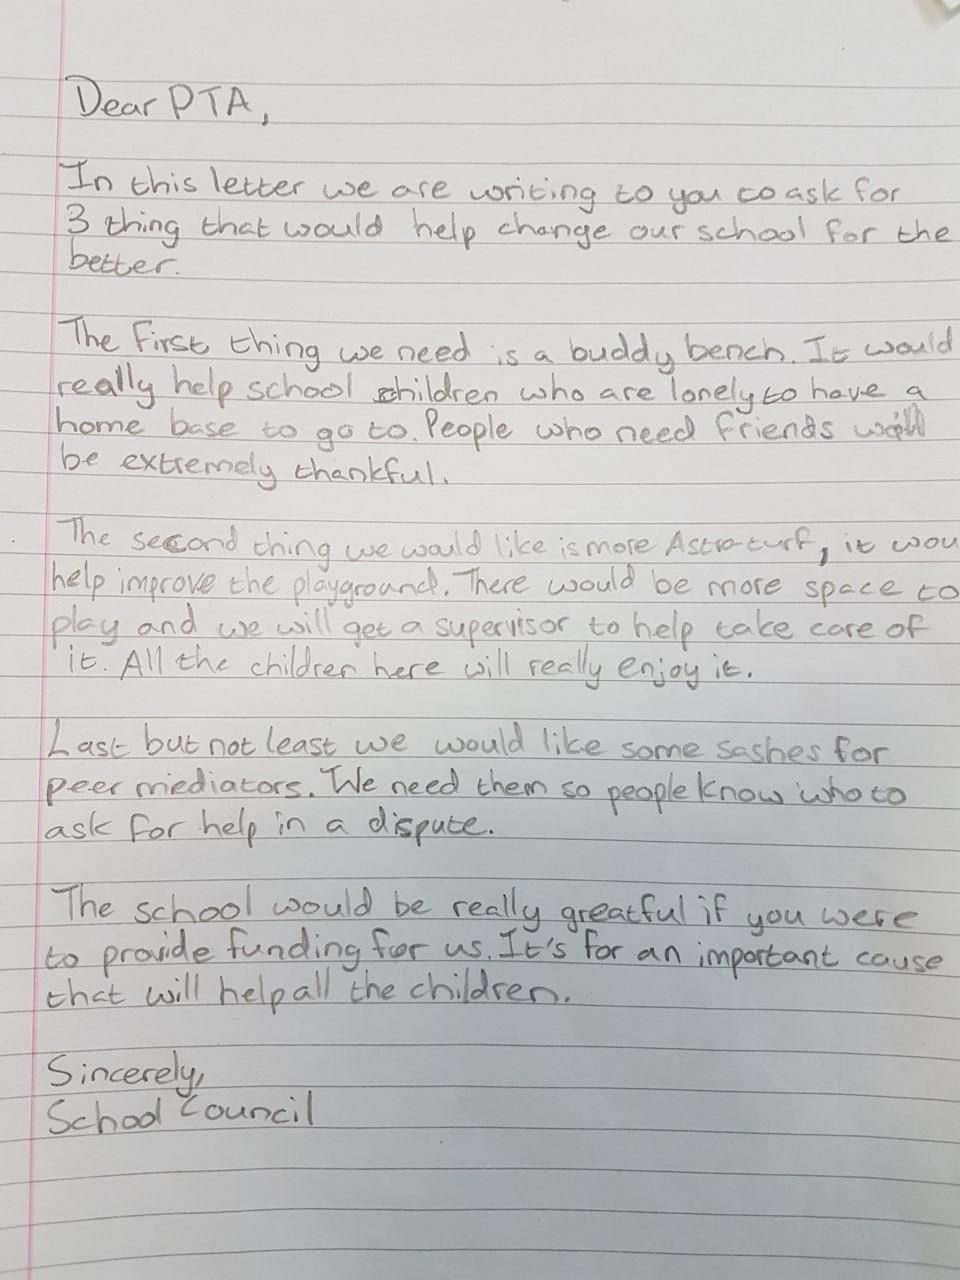 Dear PTA,
In this letter we are writing to you to ask for
3 thing that would help change our school for the
better.
The first thing we need is a buddy bench. It would
really help school children who are lonely to have a
home base to go to. People who need friends will
be extremely thankful.
The second thing we would like is more Astro-turf, it wou
help improve the playground. There would be more space to
play and we will get a supervisor to help take care of
it. All the children here will really enjoy it.
Last but not least we would like some sashes for
peer mediators. We need them so people know who to
ask for help in a dispute.
The school would be really greatful if you were
to provide funding for us. It's for an important cause
that will help all the children.
Sincerely,
School Council